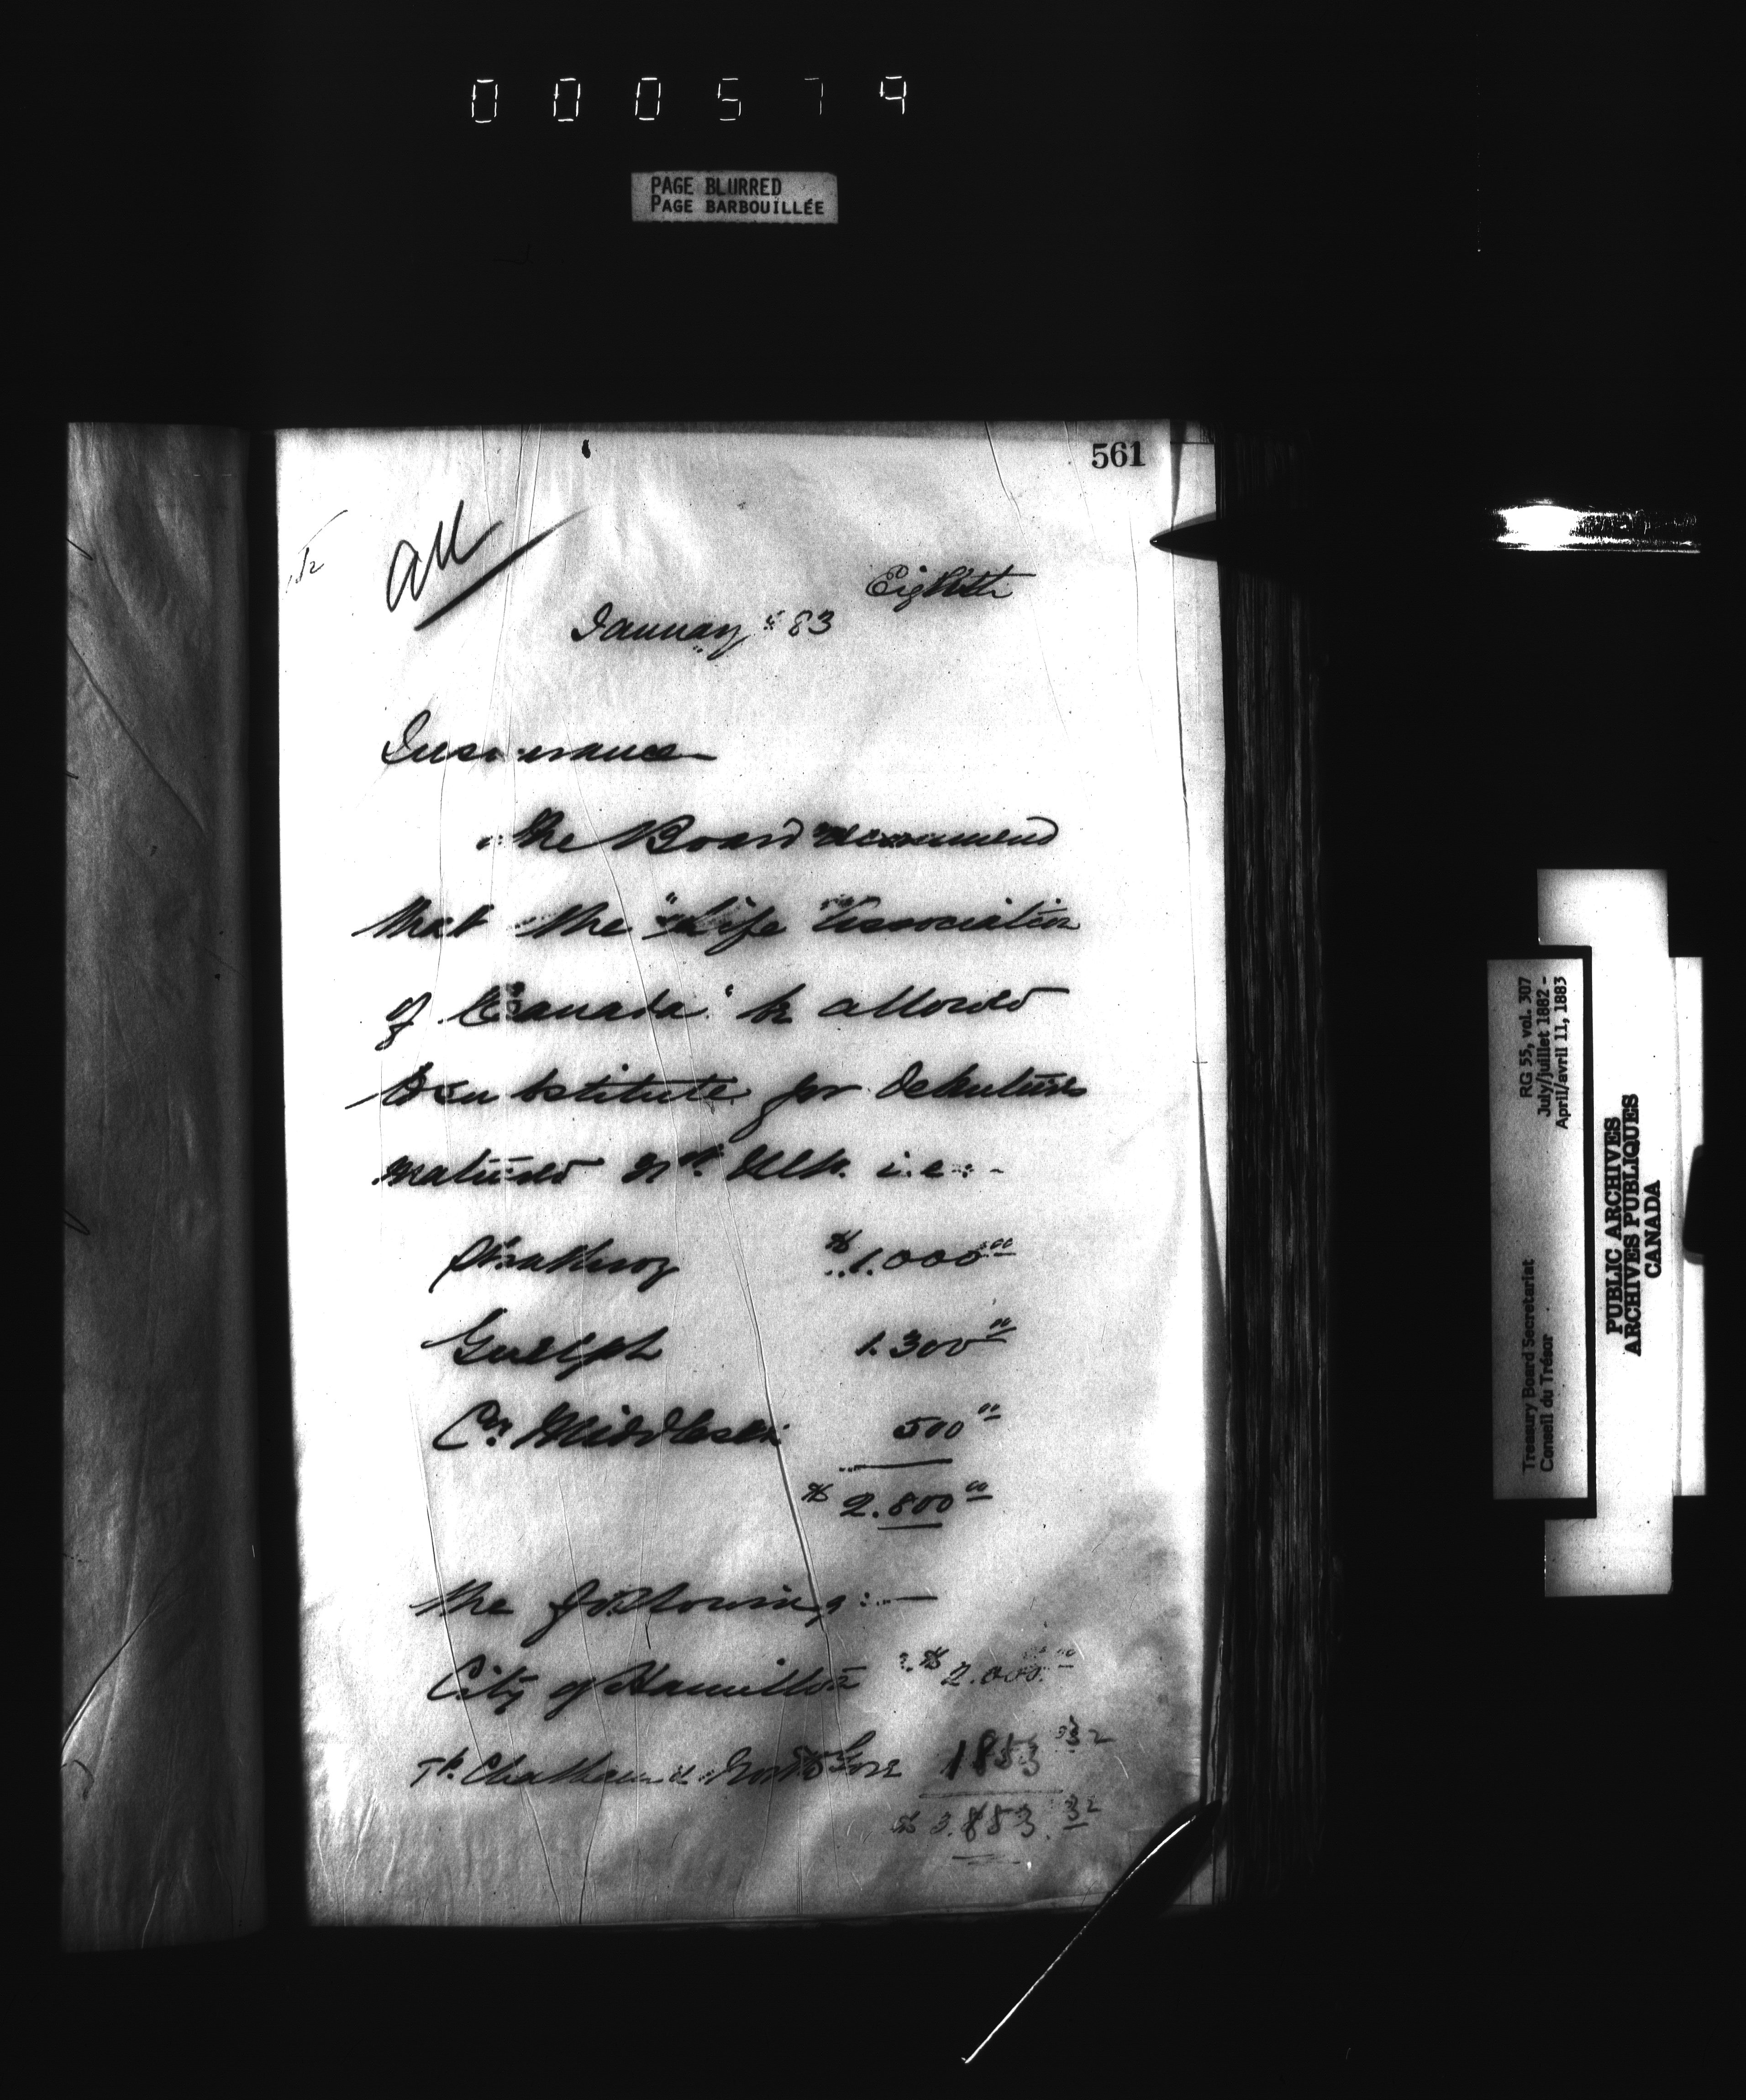 000579
PAGE BLURRED
PAGE BARBOUILLÉE
561
all
Eighth
January 83
Insurance
The Board recommend
that the "Life Association
of Canada" be allowed
to substitute for debentures
matured i.e:-
Strathroy $1.000 00
Guelph 1.300 00
Co. Middlesex 500 00
$2.800 00
the following:—
City of Hamilton $2.000 00
Tp. Chatham & North Gore 1853 32
$3.853.32
RG 55, vol. 307
July/juillet 1882 -
April/avril 11, 1883
Treasury Board Secretariat
Conseil du Trésor
PUBLIC ARCHIVES
ARCHIVES PUBLIQUES
CANADA